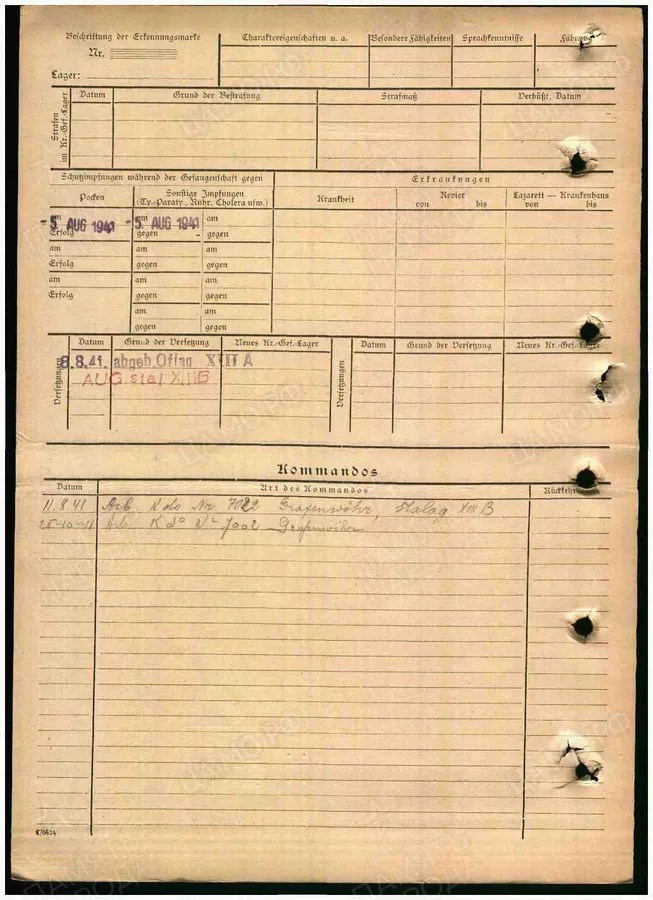 Beschriftung der Erkennungsmarke
Nr.
Lager:
Charaktereigenschaften u. a.
Besondere Fähigkeiten
Sprachkenntnisse
Führung
Strafen im Kr.-Gef.-Lager
Datum
Grund der Bestrafung
Strafmaß
Verbüßt, Datum
Schutzimpfungen während der Gefangenschaft gegen
Erkrankungen
Pocken
Sonstige Impfungen
(Ty.-Paraty., Ruhr, Cholera usw.)
Krankheit
Revier
von bis
Lazarett — Krankenhaus
von bis
am -5. AUG 1941
am -5. AUG 1941
am
Erfolg
gegen
gegen
am
am
am
Erfolg
gegen
gegen
am
am
am
Erfolg
gegen
gegen
am
am
gegen
gegen
Versetzungen
Datum
Grund der Versetzung
Neues Kr.-Gef.-Lager
Versetzungen
Datum
Grund der Versetzung
Neues Kr.-Gef.-Lager
8.8.41. abgeb. Oflag XIII A
AUG. stal XIIIB
Kommandos
Datum
Art des Kommandos
11.8.41 Arb. Kdo Nr 7022 Grafenwöhr, Stalag XIII B
25-10-41 Arb. Kdo Nr 7002 Grafenwöhr